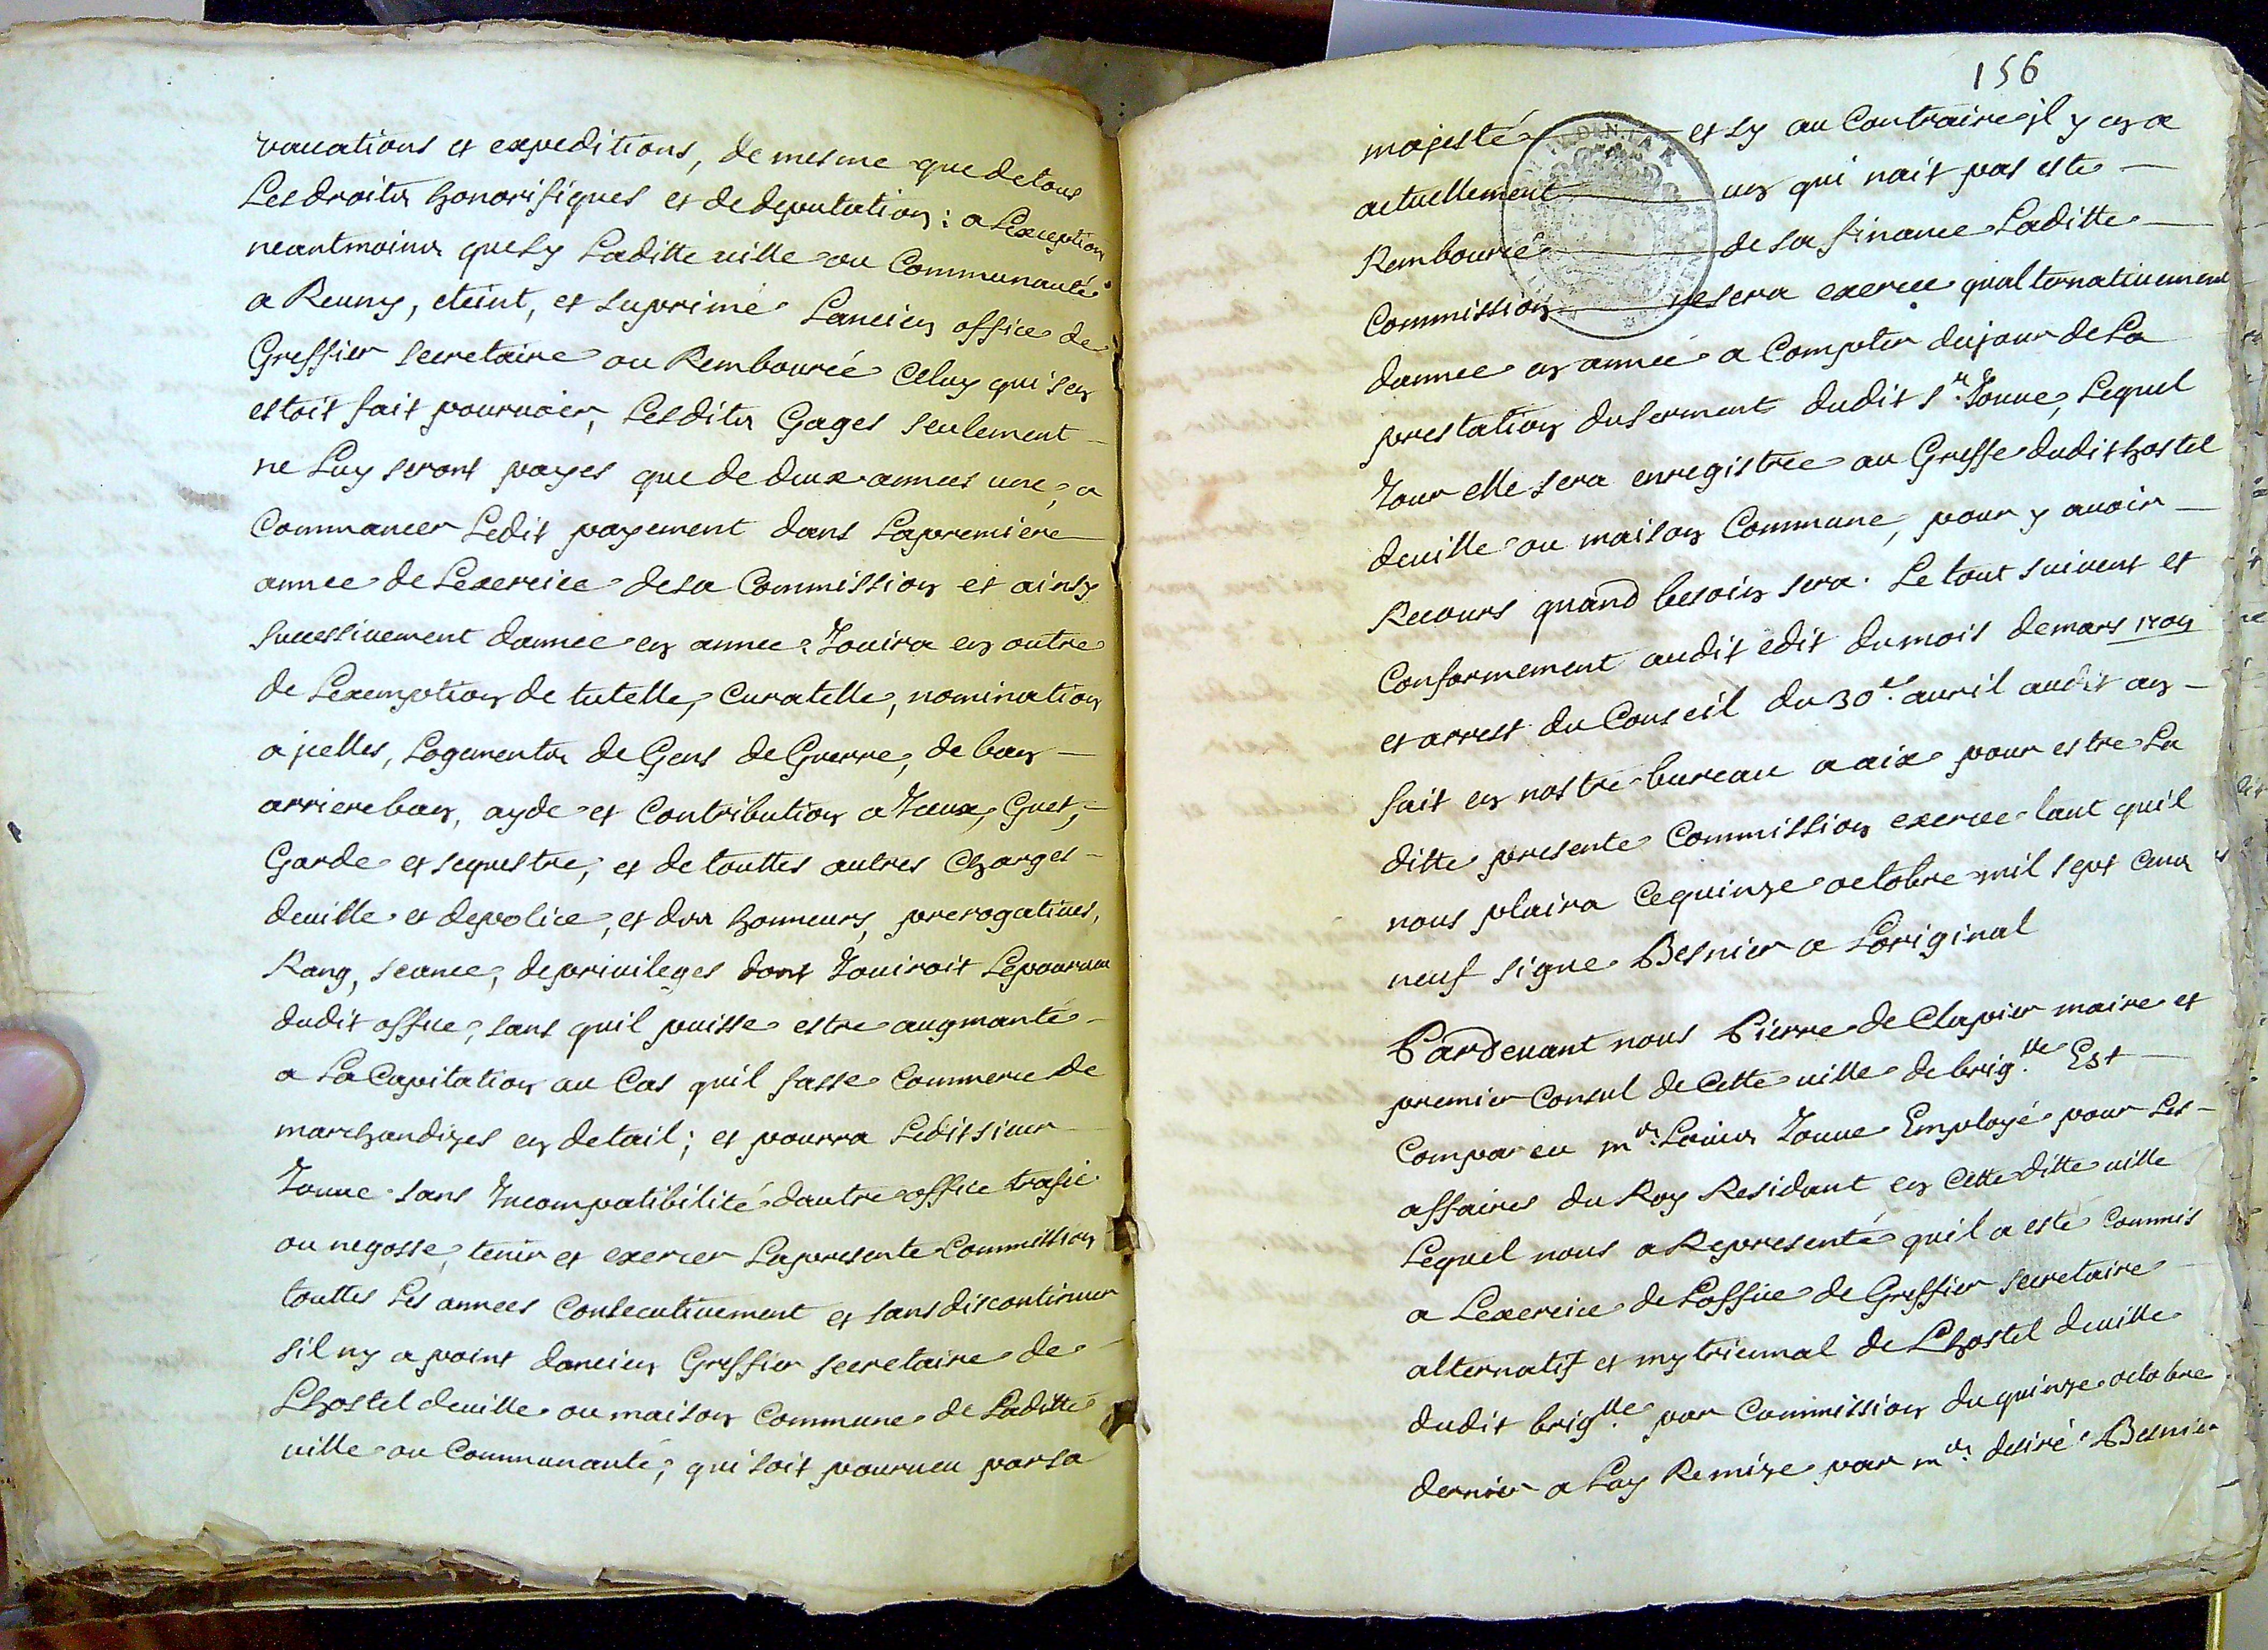 vacations et expeditions, de mesme que de tous
Les droits honorifiques et de deputation : a Lexception
neantmoins que sy Laditte ville ou Communauté
a Reuny, eteint, et suprimé Lancien office de
Greffier secretaire ou Rembourcé Celuy qui sen
estoit fait pourvoir, Lesdits Gages seulement
ne Luy seront payes que de deux annees une, a
Commancer Ledit payement dans Lapremiere
annee de Lexercice desa Commission et ainsy
successivement dannee en annee : Jouira en outre
de Lexemption de tutelle, Curatelle, nomination
a jcelles, Logements de Gens de Guerre, de ban
arriereban, ayde et Contribution a Jceux, Guet,
Garde et sequestre, et de touttes autres Charges
deville et depolice, et des honneurs, prerogatives,
Rang, seance, deprivileges dont Jouiroit Lepourveu
dudit office, sans quil puisse estre augmanté
a LaCapitation au Cas quil fasse Commerce de
marchandizes en detail; et pourra Ledit sieur
Jouve sans Jncompatibilité dautre office trafic
ou negosse, tenir et exercer Lapresente Commission
touttes Les annees Consecutivement et sans discontinuer
sil ny a point dancien Greffier secretaire de
Lhostel deville ou maison Commune de Laditte
ville ou Communauté, qui soit pourveu par sa
156
majesté et sy au Contraire jl y en a
actuellement un qui nait pas esté
Rembourcé de sa finance Laditte
Commission nesera exercee qualternativement
dannee en année a Compter dujour de La
prestation du serment dudit sr. Jouve, Lequel
Jour elle sera enregistree au Greffe dudit hostel
deville ou maison Commune, pour y avoir
Recours quand besoin sera. Le tout suivent et
Conformement audit edit dumois demars 1709
et arrest du Conseil du 30e. avril audit an
fait en nostre bureau a aix pour estre La
ditte presente Commission exercee tant quil
nous plaira Cequinze octobre mil sept cens
neuf signe Besnier a Loriginal
Pardevant nous Pierre de Clapier maire et
premier Consul de Cette ville de brig.lle Est
Compareu mr. Louis Jouve Employé pour Les
affaires du Roy Residant en Cette ditte ville
Lequel nous a Representé quil a esté Commis
a Lexercice de Loffice de Greffier secretaire
alternatif et mytriennal de Lhostel deville
dudit brig.lle par Commission du quinze octobre
dernier a Luy Remize par mr. desiré Besnier